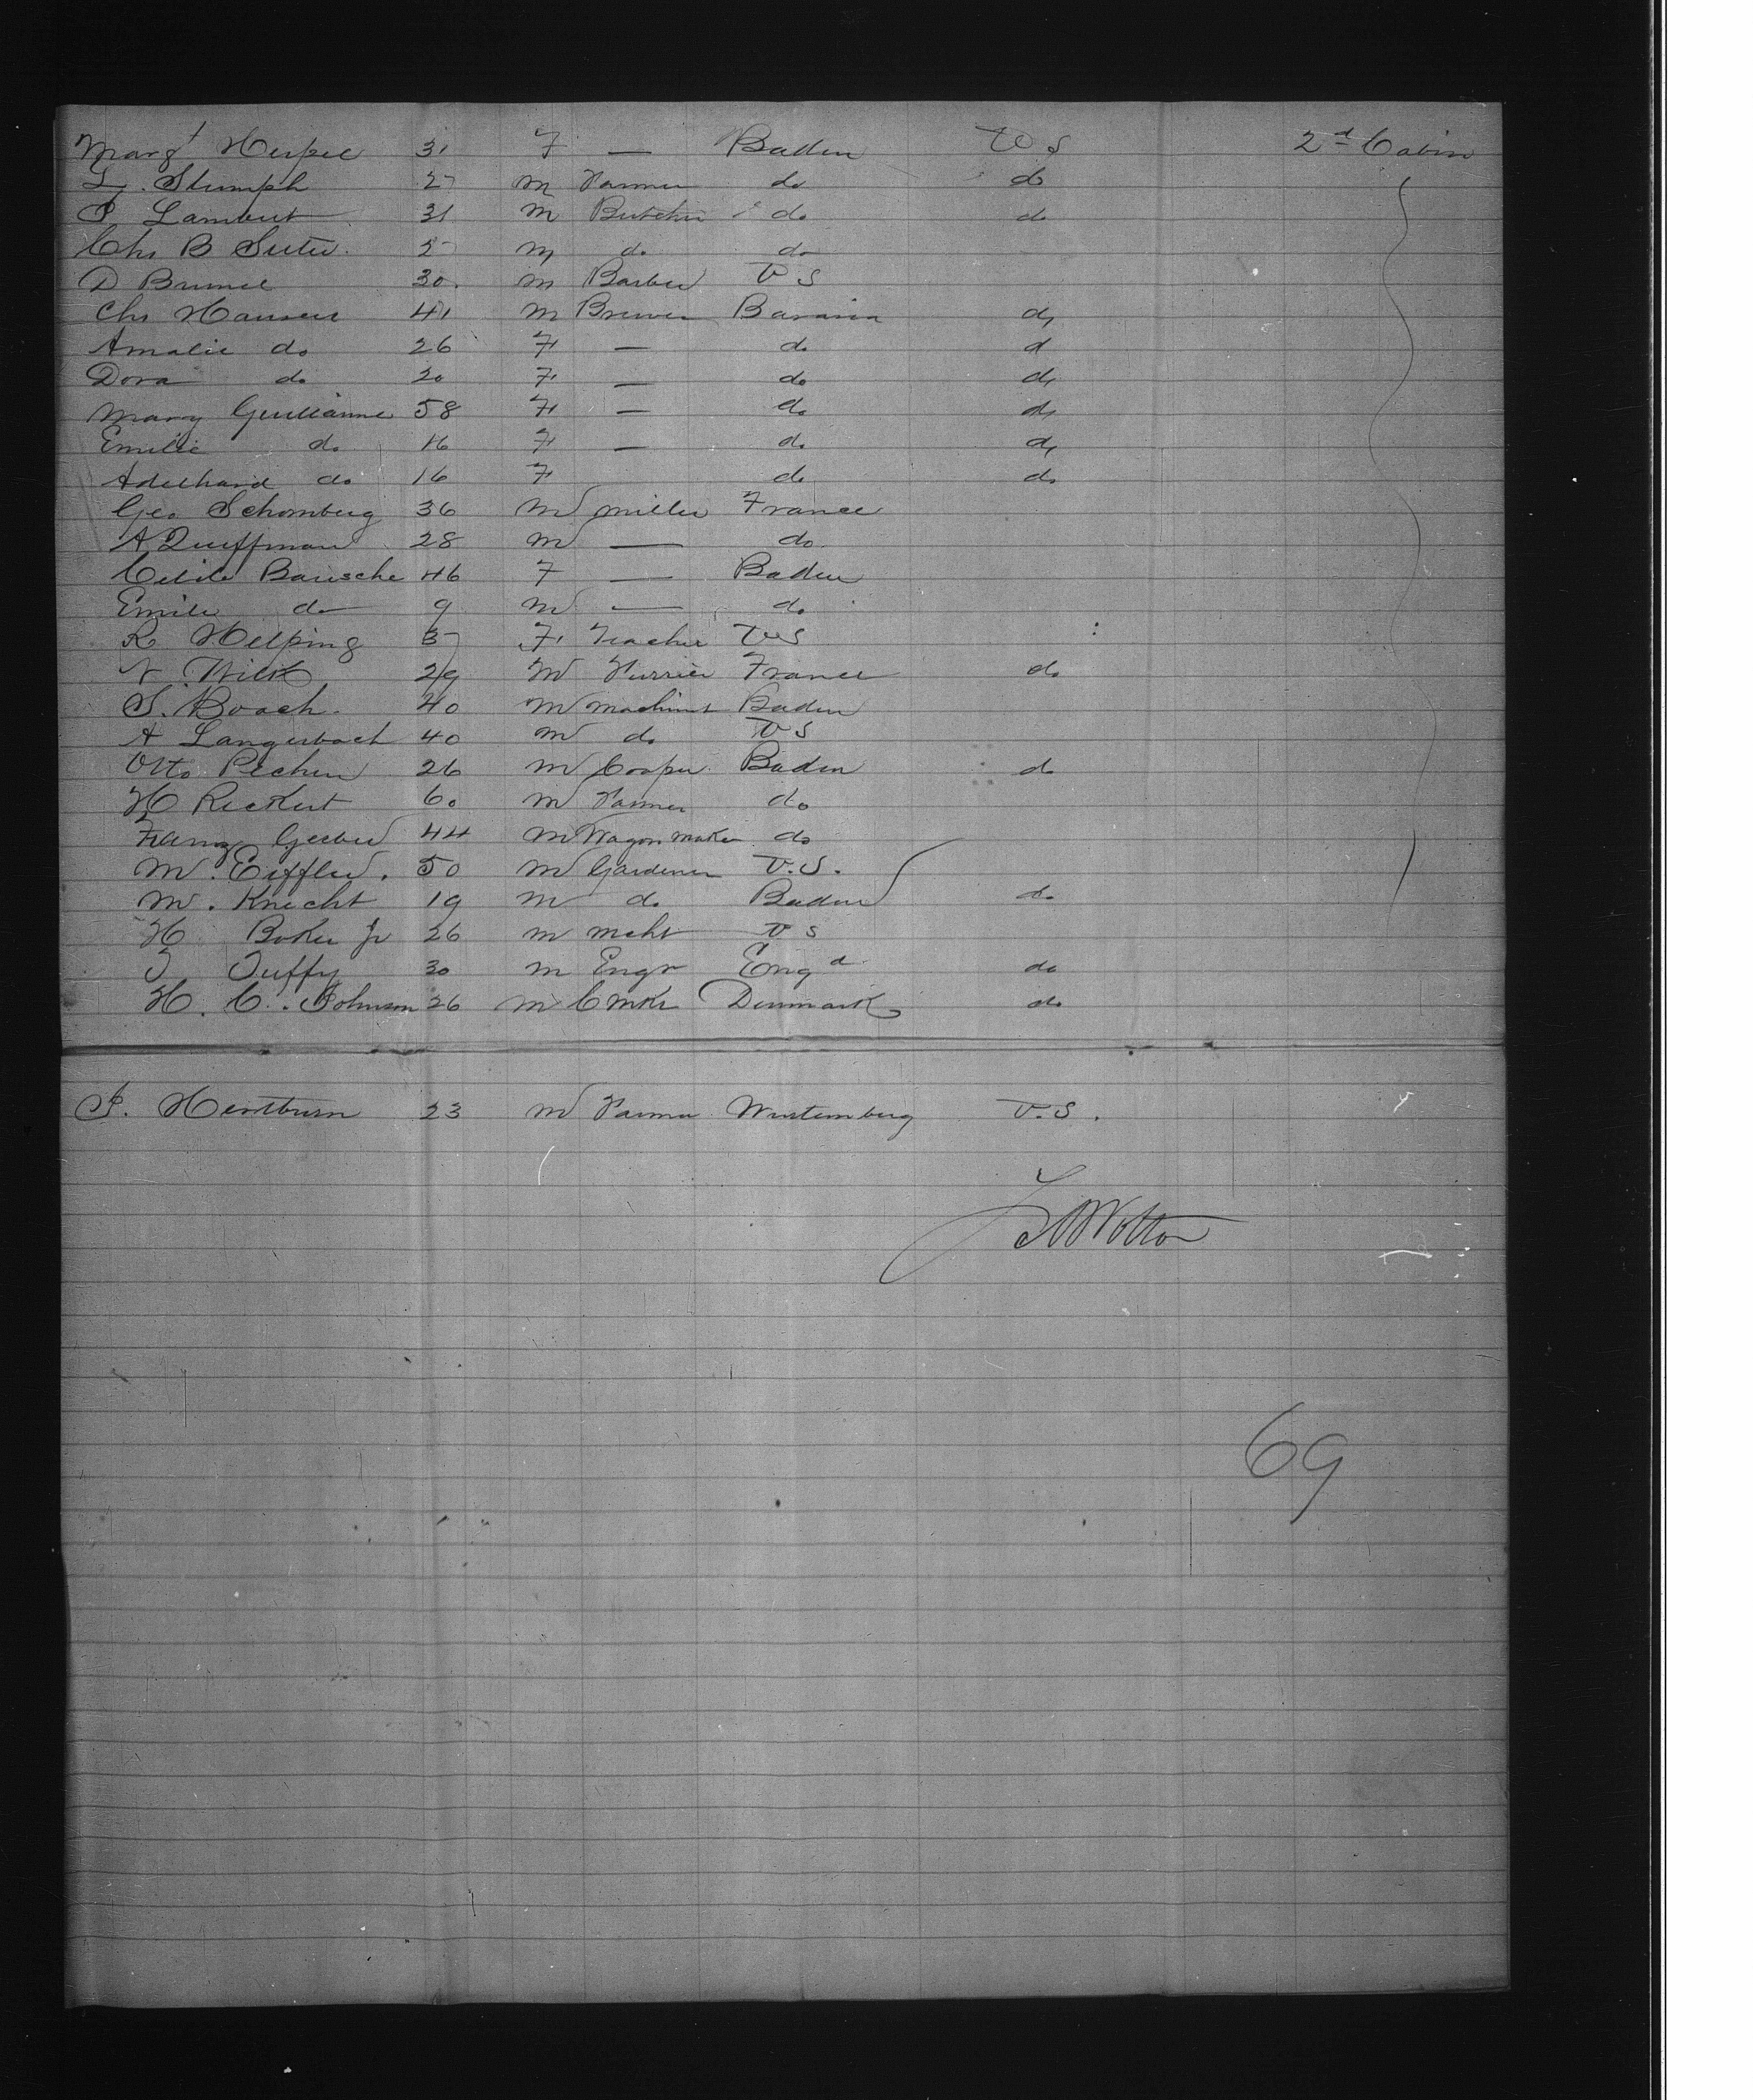 Marg't Herpel 31 F — Baden U.S 2d Cabin
L. Stumph 27 M Farmer do do
P Lambert 31 M Butcher do do
Chs B Suter 27 M do do
D Brunel 30. M Barber U S
Chs Hansen 41 M Brewer Bavaria do
Amalie do 26 F — do do
Dora do 20 F — do do
Mary Guillianne 58 F — do do
Emilie do 16 F — do do
Adelhard do 16 F do do
Geo Schomberg 36 M Miller France
A 28 M — do
Barische 46 F — Baden
Emile do 9 M — do
R Helping 37 F Teacher U S
Wilk 29 M Furrier France do
S. Boach 40 M Machinist Baden
A Langerbach 40 M do U S
Otto Pechen 26 M Cooper Baden do
H Reckert 60 M Farmer do
Franz Gerber 44 M Wagon maker do
M. Eiffler. 50 M Gardener U.S.
M. Knecht 19 M do Baden do
H Boker Jr 26 M Mcht U S
Tuffy 30 M Engr Engd do
H. C. Johnson 26 M Cmkr Denmark do
J. Hentburn 23 M Farmer Wurtemberg U.S.
Wotton
69